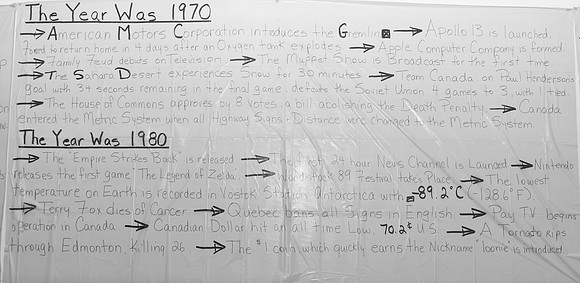 The Year Was 1970
→ American Motors Corporation introduces the Gremlin → Apollo 13 is launched.
Forced to return home in 4 days after an Oxygen tank explodes → Apple Computer Company is formed.
→ Family Feud debuts on Television → The Muppet Show is Broadcast for the first time
→ The Sahara Desert experiences Snow for 30 minutes → Team Canada, on Paul Hendersons
goal with 34 seconds remaining in the final game, defeats the Soviet Union 4 games to 3, with 1 tied.
→ The House of Commons approves by 8 votes, a bill abolishing the Death Penalty → Canada
entered the Metric System when all Highway Signs + Distance were changed to the Metric System.
The Year Was 1980
→ The "Empire Strikes Back" is released → The first 24 hour News Channel is Launced → Nintendo
releases the first game "The Legend of Zelda → Woodstock 89 Festival takes Place → The lowest
temperature on Earth is recorded in Vostok Station Antarctica with -89.2°C (-128.6°F).
→ Terry Fox dies of Cancer → Quebec bans all Signs in English → Pay TV begins
operation in Canada → Canadian Dollar hit an all time Low, 70.2¢ U.S → A Tornado Rips
through Edmonton, Killing 26 → The $1 coin, which quickly earns the Nickname "loonie" is introduced.